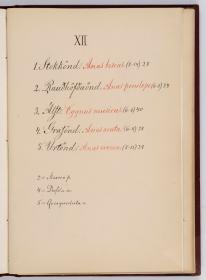 XII
1. Stokkönd: Anas boscas. (8-14) 28
2. Rauðhöfðaönd: Anas penelope (6-9) 24
3. Álft: Cygnus musicus (4-6) 40
4. Grafönd: Anas acuta (6-9) 28
5. Urtönd: Anas crecca. (8-12) 28
2 = Mareca p.
4 = Dafila a.
5 = Querquedula c.